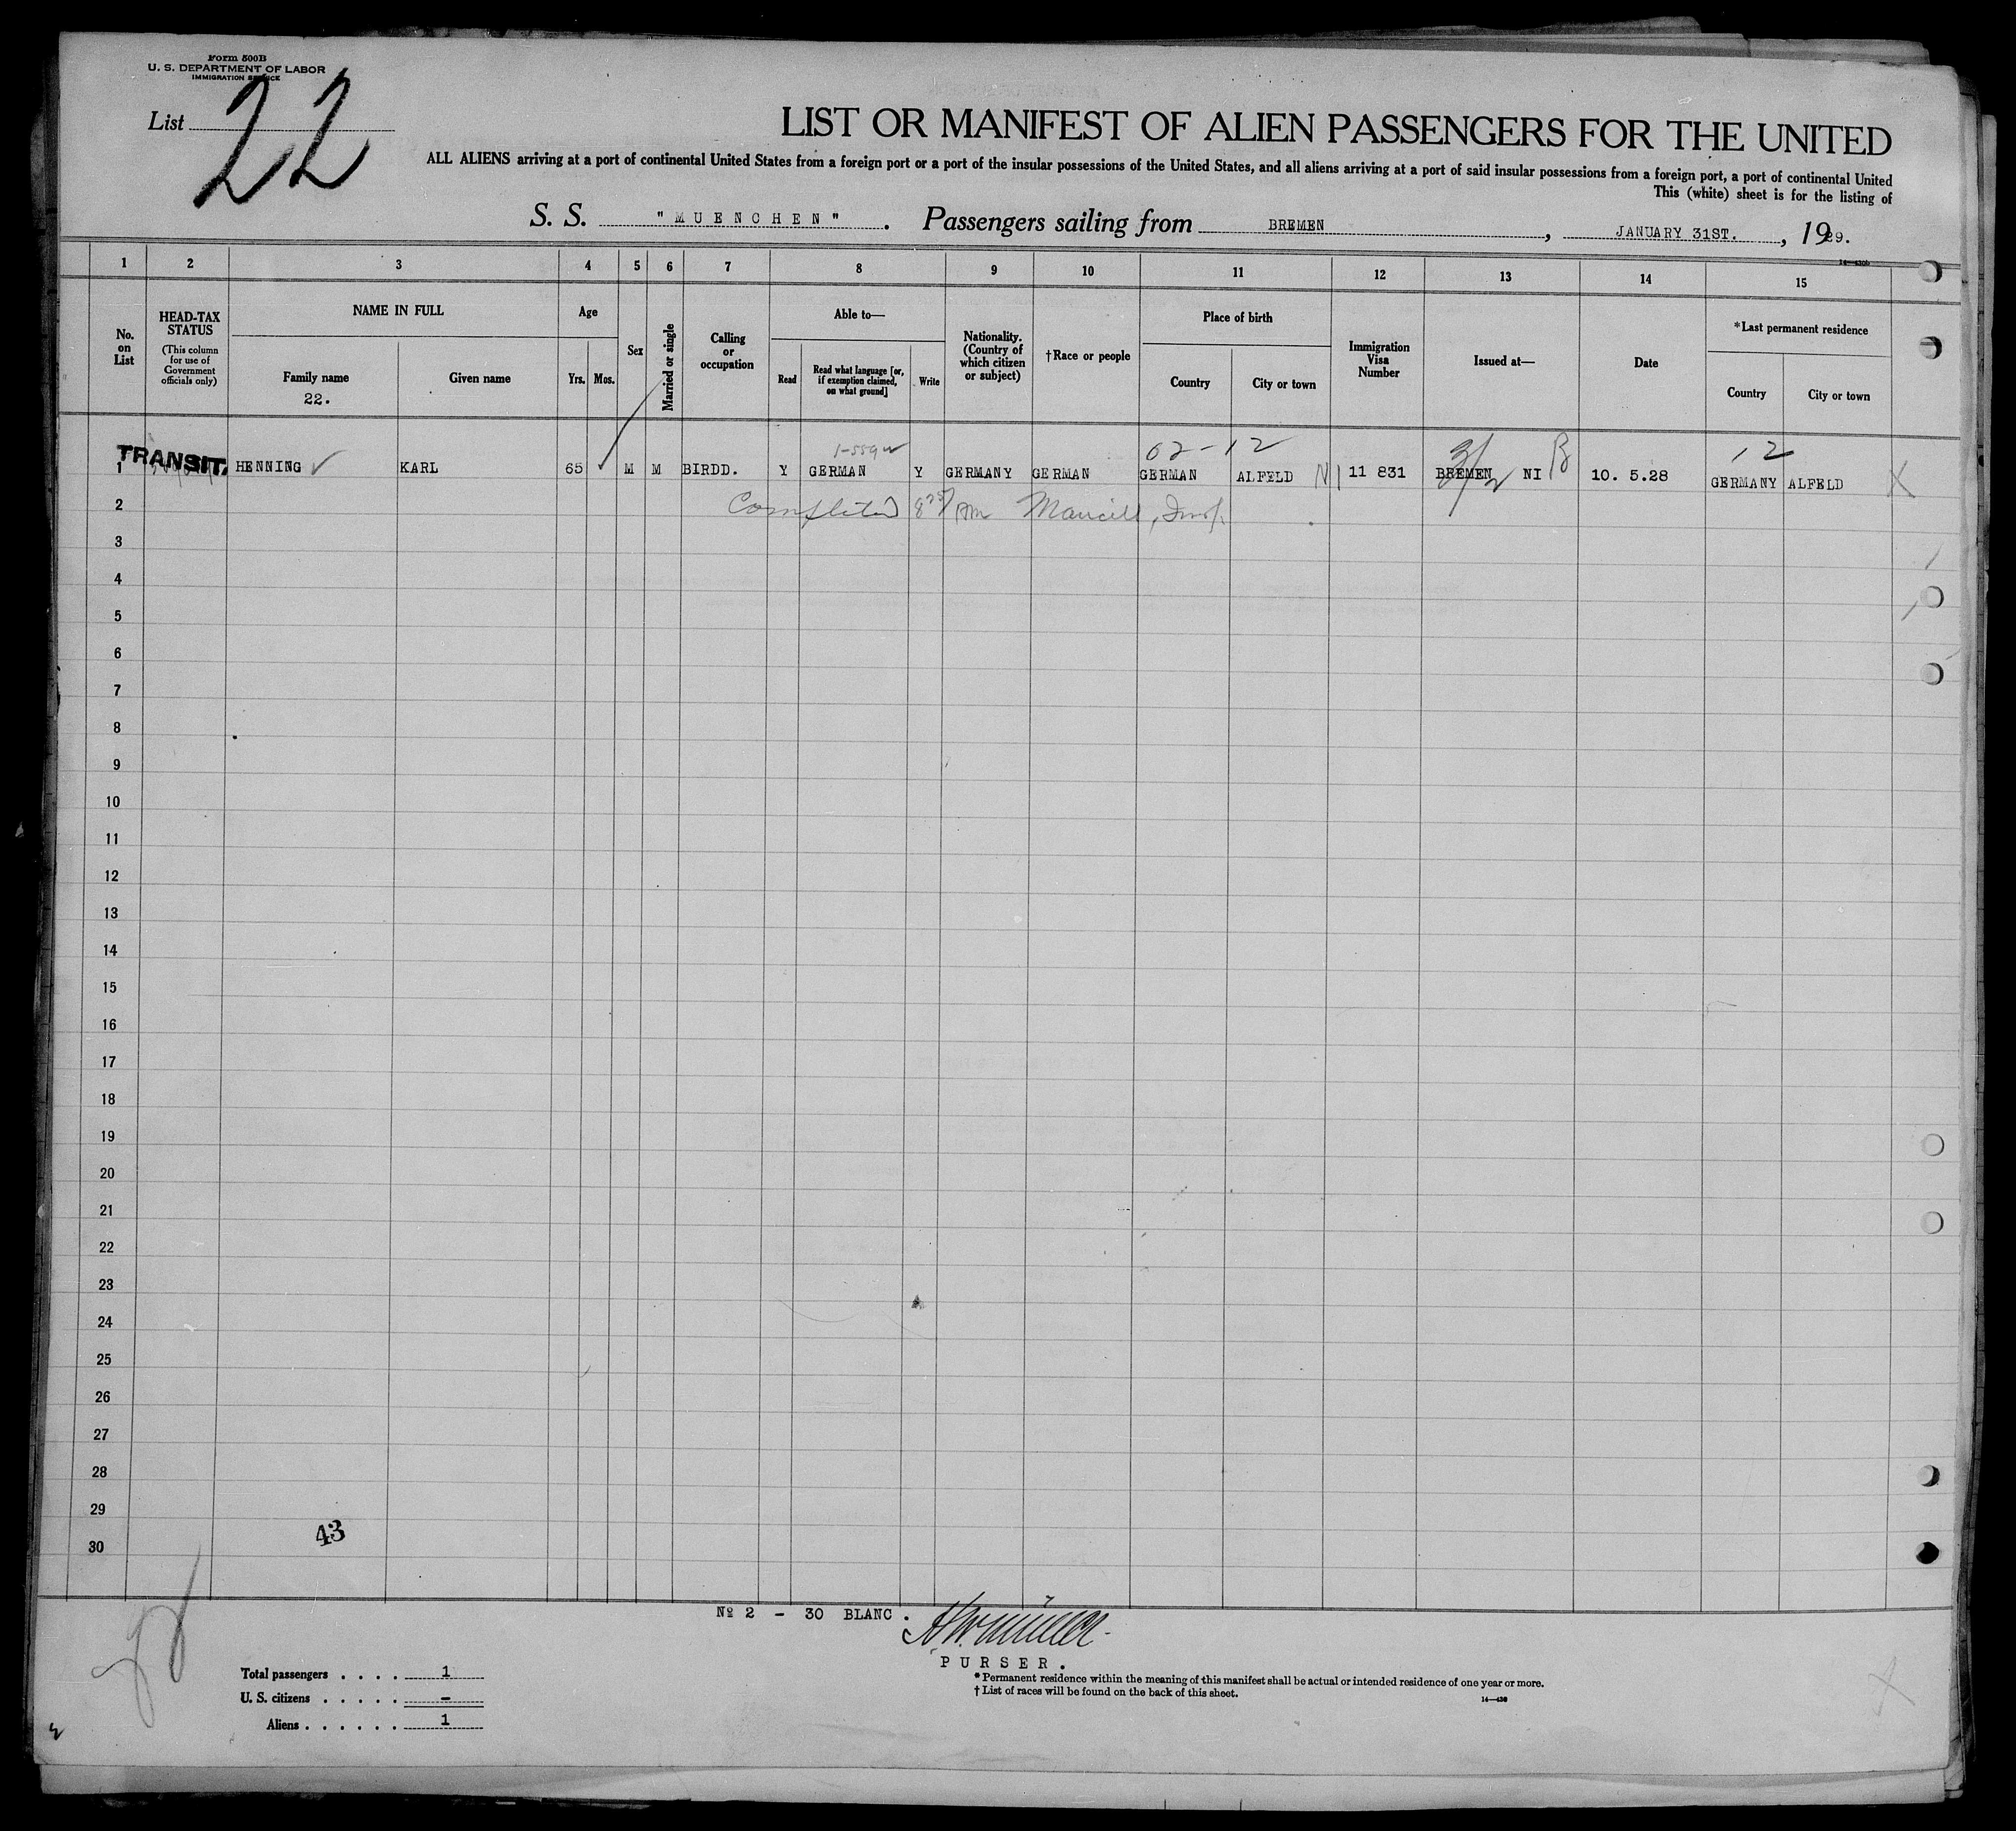 Form 500B
U. S. DEPARTMENT OF LABOR
IMMIGRATION SERVICE
List 22
LIST OR MANIFEST OF ALIEN PASSENGERS FOR THE UNITED
ALL ALIENS arriving at a port of continental United States from a foreign port or a port of the insular possessions of the United States, and all aliens arriving at a port of said insular possessions from a foreign port, a port of continental United
This (white) sheet is for the listing of
S. S. "MUENCHEN". Passengers sailing from BREMEN, JANUARY 31ST., 1929.
1 2 3 4 5 6 7 8 9 10 11 12 13 14 15
No. on List
HEAD-TAX STATUS
(This column for use of Government officials only)
NAME IN FULL
Family name
22.
Given name
Age
Yrs. Mos.
Sex
Married or single
Calling or occupation
Able to—
Read
Read what language [or, if exemption claimed, on what ground]
Write
Nationality. (Country of which citizen or subject)
†Race or people
Place of birth
Country
City or town
Immigration Visa Number
Issued at—
Date
*Last permanent residence
Country
City or town
02-12 12
1 TRANSIT. HENNING KARL 65 M M BIRDD. Y GERMAN Y GERMANY GERMAN GERMAN ALFELD 11 831 BREMEN NI 10. 5.28 GERMANY ALFELD X
2 Completed
3
4
5
6
7
8
9
10
11
12
13
14
15
16
17
18
19
20
21
22
23
24
25
26
27
28
29
43
30
№ 2 - 30 BLANC.
PURSER.
Total passengers . . . . 1
U. S. citizens . . . . . —
Aliens . . . . . . 1
* Permanent residence within the meaning of this manifest shall be actual or intended residence of one year or more.
† List of races will be found on the back of this sheet.
14—430